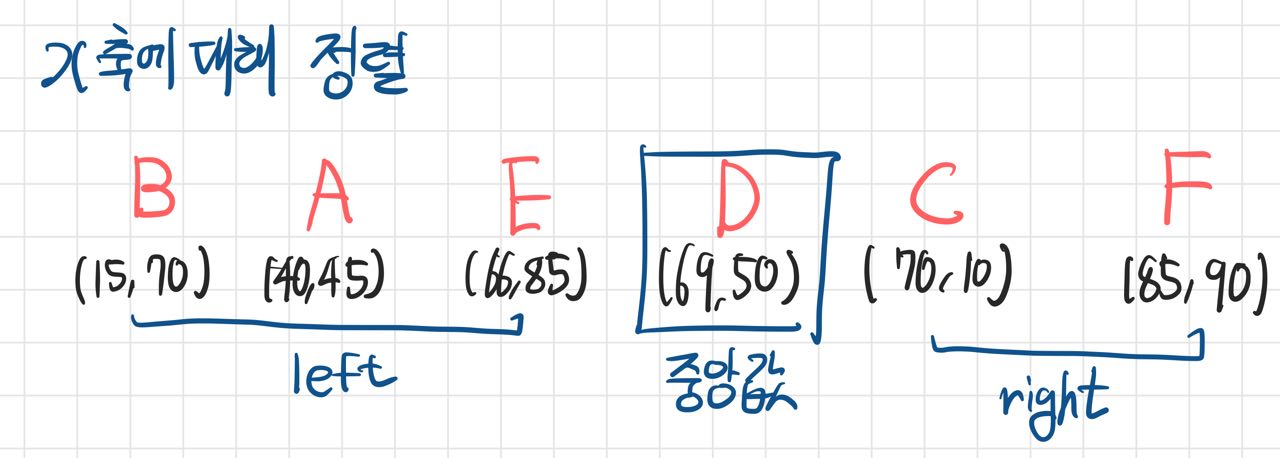 x축에 대해 정렬
B A E D C F
(15,70) (40,45) (66,85) (69,50) (70,10) (85,90)
left 중앙값 right